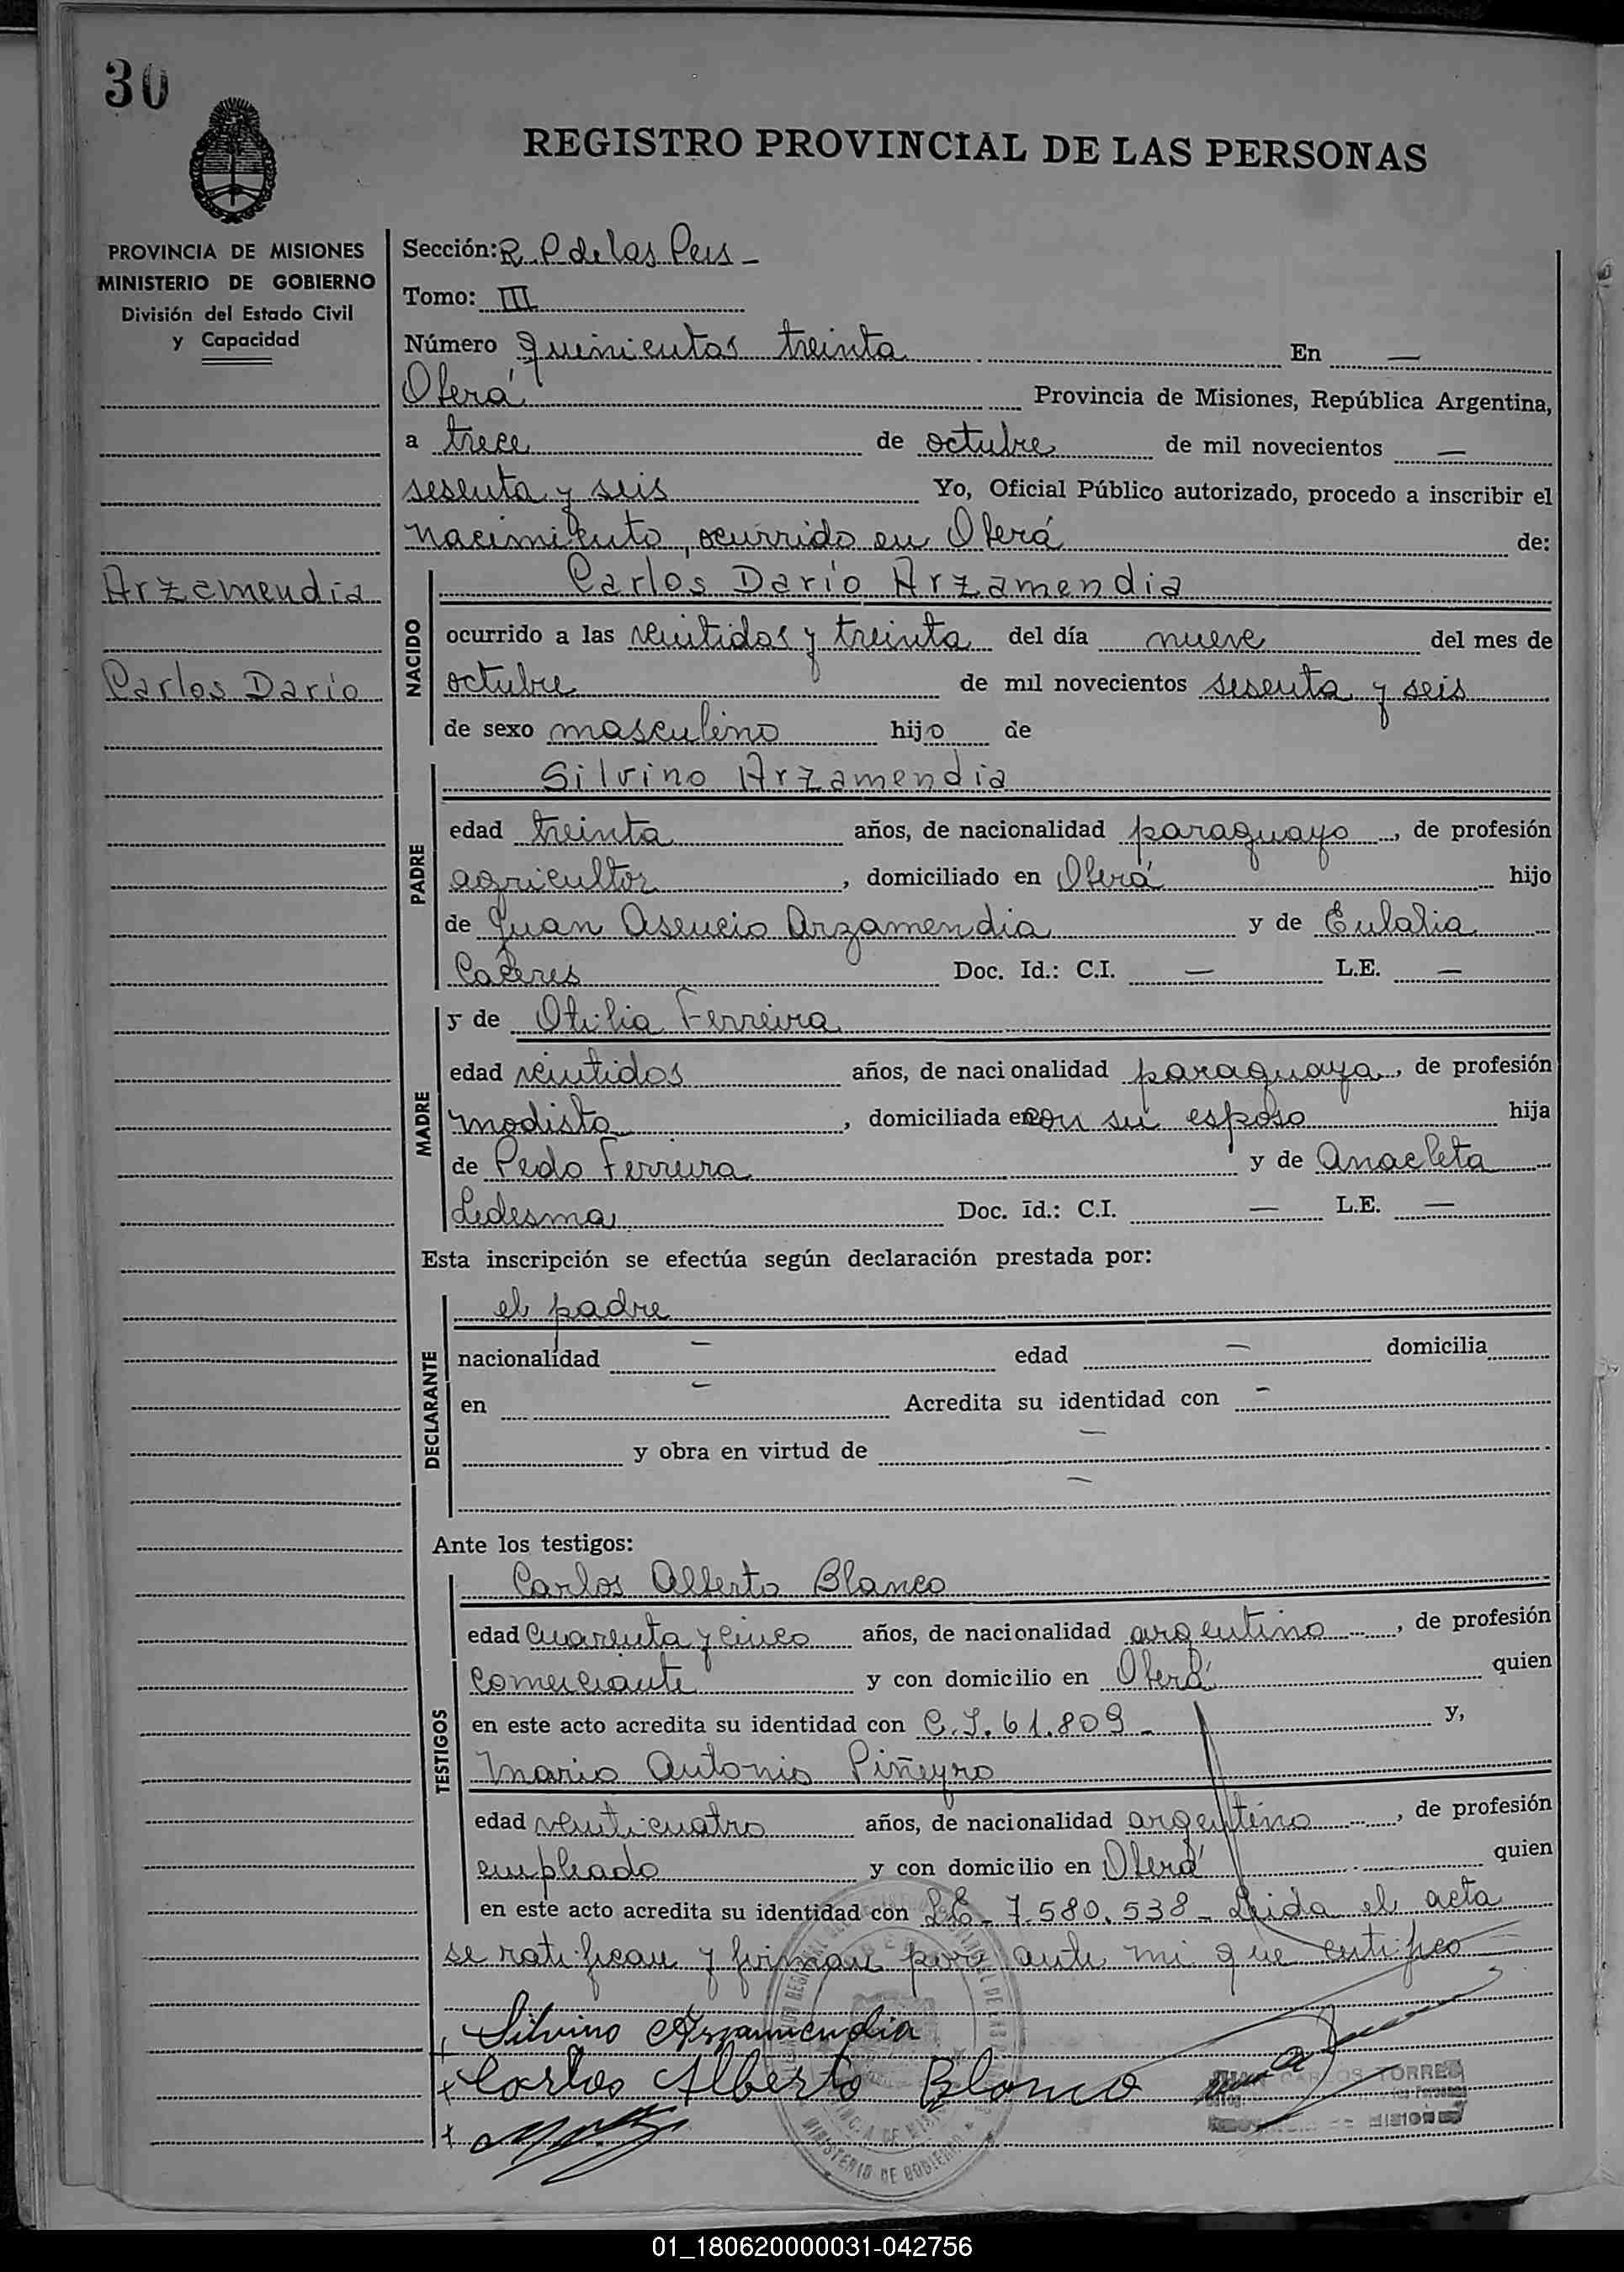 30
REGISTRO PROVINCIAL DE LAS PERSONAS
PROVINCIA DE MISIONES
MINISTERIO DE GOBIERNO
División del Estado Civil
y Capacidad
Arzamendia
Carlos Darío
Sección: R. P de las Pers –
Tomo: III
Número quinientos treinta En —
Oberá Provincia de Misiones, República Argentina,
a trece de octubre de mil novecientos —
sesenta y seis Yo, Oficial Público autorizado, procedo a inscribir el
nacimiento, ocurrido en Oberá de:
NACIDO
Carlos Darío Arzamendia
ocurrido a las veintidos y treinta del día nueve del mes de
octubre de mil novecientos sesenta y seis
de sexo masculino hijo de
PADRE
Silvino Arzamendia
edad treinta años, de nacionalidad paraguayo, de profesión
agricultor, domiciliado en Oberá hijo
de Juan Asencio Arzamendia y de Eulalia
Caceres Doc. Id.: C.I. — L.E. —
MADRE
y de Otilia Ferreira
edad veintidos años, de nacionalidad paraguaya, de profesión
modista, domiciliada en con su esposo hija
de Pedo Ferreira y de Anacleta
Ledesma Doc. Id.: C.I. — L.E. —
Esta inscripción se efectúa según declaración prestada por:
DECLARANTE
el padre
nacionalidad — edad — domicilia
en — Acredita su identidad con —
y obra en virtud de —
—
Ante los testigos:
TESTIGOS
Carlos Alberto Blanco
edad cuarenta y cinco años, de nacionalidad argentino, de profesión
comerciante y con domicilio en Oberá quien
en este acto acredita su identidad con C.I. 61.809 – y,
Mario Antonio Piñeyro
edad veinticuatro años, de nacionalidad argentino, de profesión
empleado y con domicilio en Oberá quien
en este acto acredita su identidad con L.E. 7.580.538 – Leida el acta
se ratifican y firman por ante mi que certifico
Silvino Arzamendia
x Carlos Alberto Blanco
JUAN CARLOS TORRES
DE MISIONES
MINISTERIO DE GOBIERNO
01_180620000031-042756